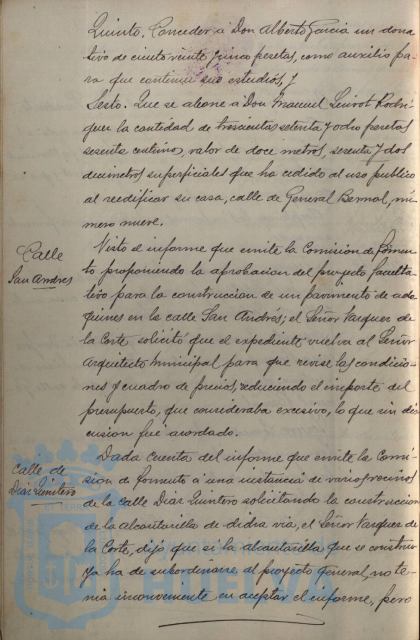 Quinto. Conceder á Don Alberto García un dona
tivo de ciento veinte y cinco pesetas, como auxilio pa-
ra que continúe sus estudios, y
Sesto. Que se abone á Don Manuel Quirot Rodri
guez la cantidad de trescientas setenta y ocho pesetas
sesenta centimos, valor de doce metros, sesenta y dos
decimetros superficiales que ha cedido al uso publico
al reedificar su casa, calle de General Bernal, nú
mero nueve.
Calle
San Andres
Visto el informe que emite la Comision de Fomen-
to proponiendo la aprobacion del proyecto faculta-
tivo para la construccion de un pavimento de ado
quines en la calle San Andrés; el Señor Vazquez de
la Corte solicitó que el expediente vuelva al Señor
Arquitecto municipal para que revise las condicio-
nes y cuadro de precios, reduciendo el importe del
presupuesto, que consideraba excesivo, lo que sin dis
cusion fué acordado.
Calle de
Diaz Quintero
Dada cuenta del informe que emite la Comi-
sion de fomento á una instancia de varios vecinos
de la calle Diaz Quintero solicitando la construccion
de la alcantarilla de dicha via, el Señor Vazquez de
la Corte, dijo que si la alcantarilla que se construy
ya ha de subordinarse al proyecto general, no te-
nia inconveniente en aceptar el informe, pero